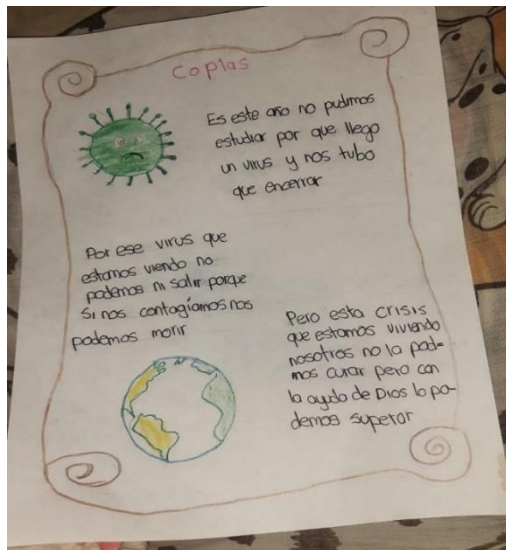 Coplas
Es este año no pudimos
estudiar por que llego
un virus y nos tubo
que encerrar
Por ese virus que
estamos viendo no
podemos ni salir porque
si nos contagiamos nos
podemos morir
Pero esta crisis
que estamos viviendo
nosotros no la pode-
mos curar pero con
la ayuda de Dios lo po-
demos superar